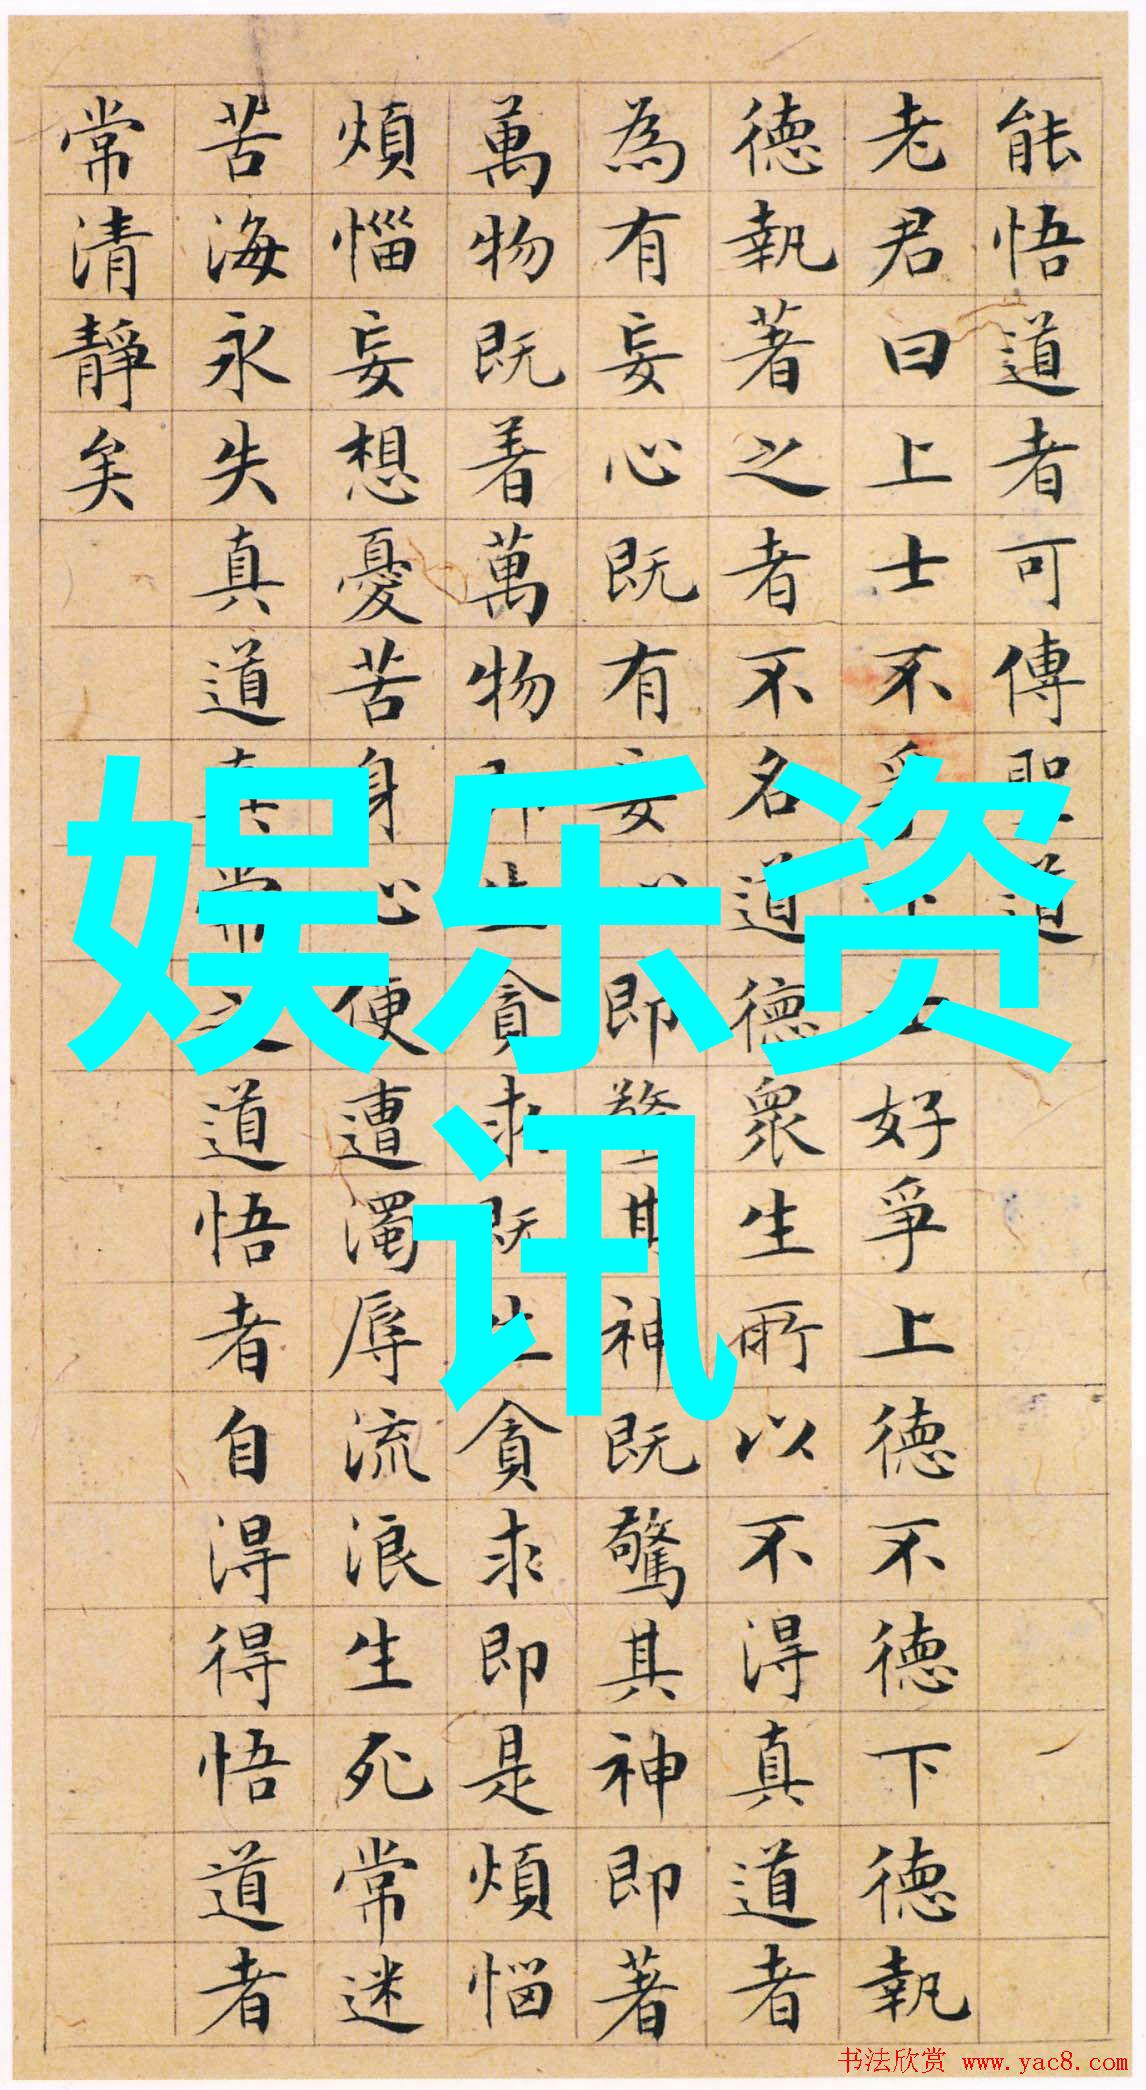 能悟道者可傳聖道
老君曰上士不爭下士好爭上德不德下德執
德執著之者不名道德衆生所以不得真道者
為有妄心既有妄心即驚其神既驚其神即著
萬物既着萬物即生貪求既生貪求即是煩惱
煩惱妄想憂苦身心便遭濁辱流浪生死常沉
苦海永失真道真常之道悟者自得得悟道者
常清靜矣
娱乐资
讯
书法欣赏 www.yac8.com